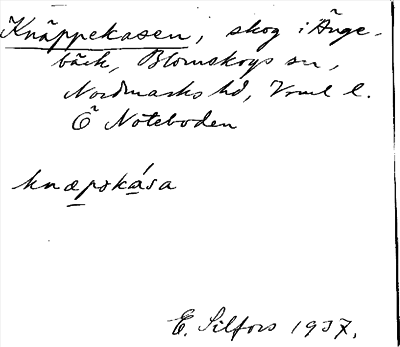 Knäppekasen, skog i Änge-
bäck, Blomskogs sn,
Nordmarks hd, Vrml l.
Ö Noteboden
knæpskása
E. Silfors 1937.